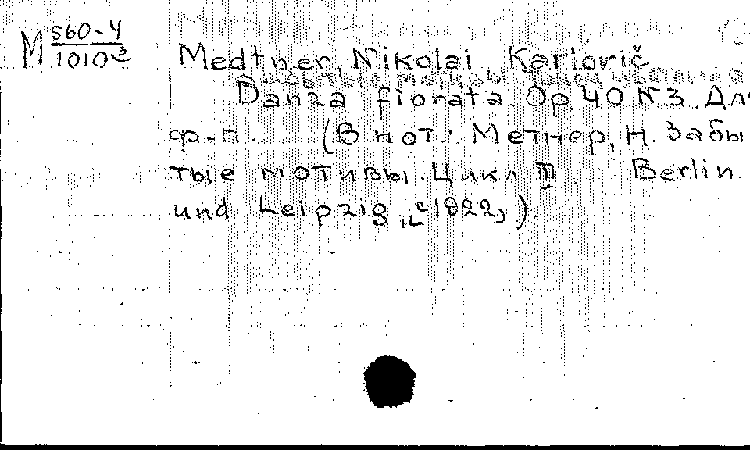 M 560-4
1010³
Medtner, Nikolai Karlovič
Danza fiorata. Op. 40 №3. Дл
ф.-п. (В нот: Метнер, Н. Забы
тые мотивы. Цикл III. Berlin
und Leipzig,